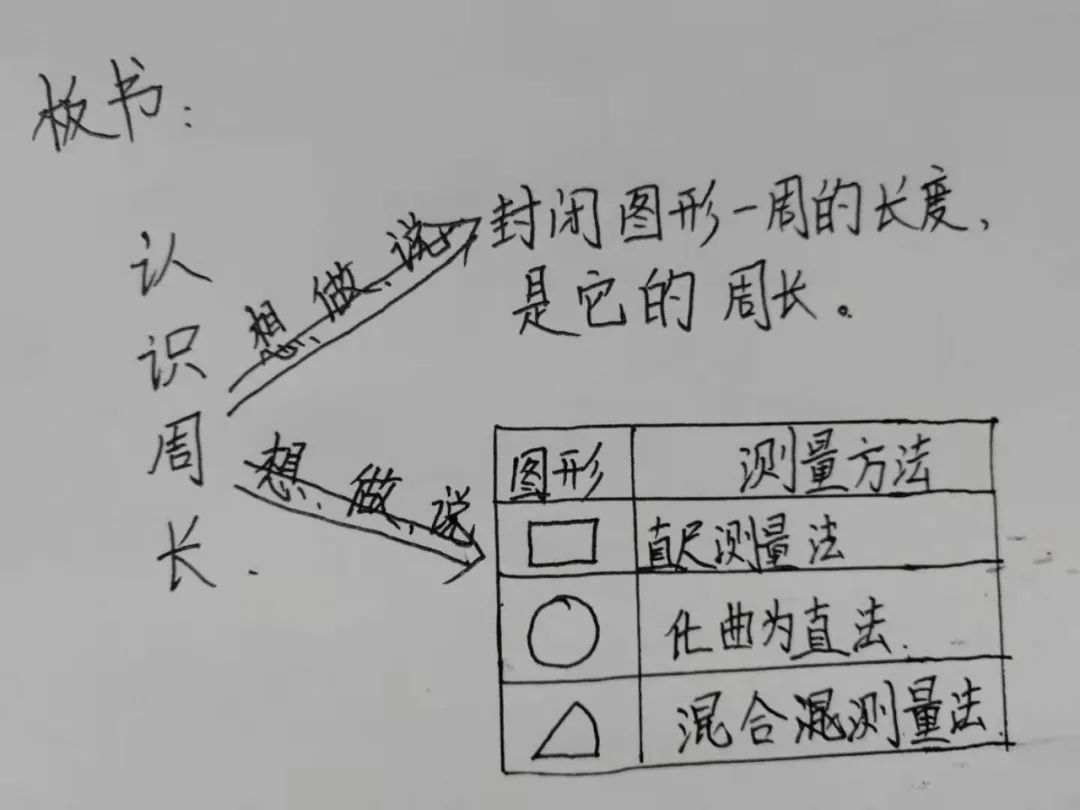 板书:
认识周长.
想、做、说
封闭图形一周的长度,
是它的周长。
想、做、说
图形 测量方法
直尺测量法
化曲为直法.
混合混测量法